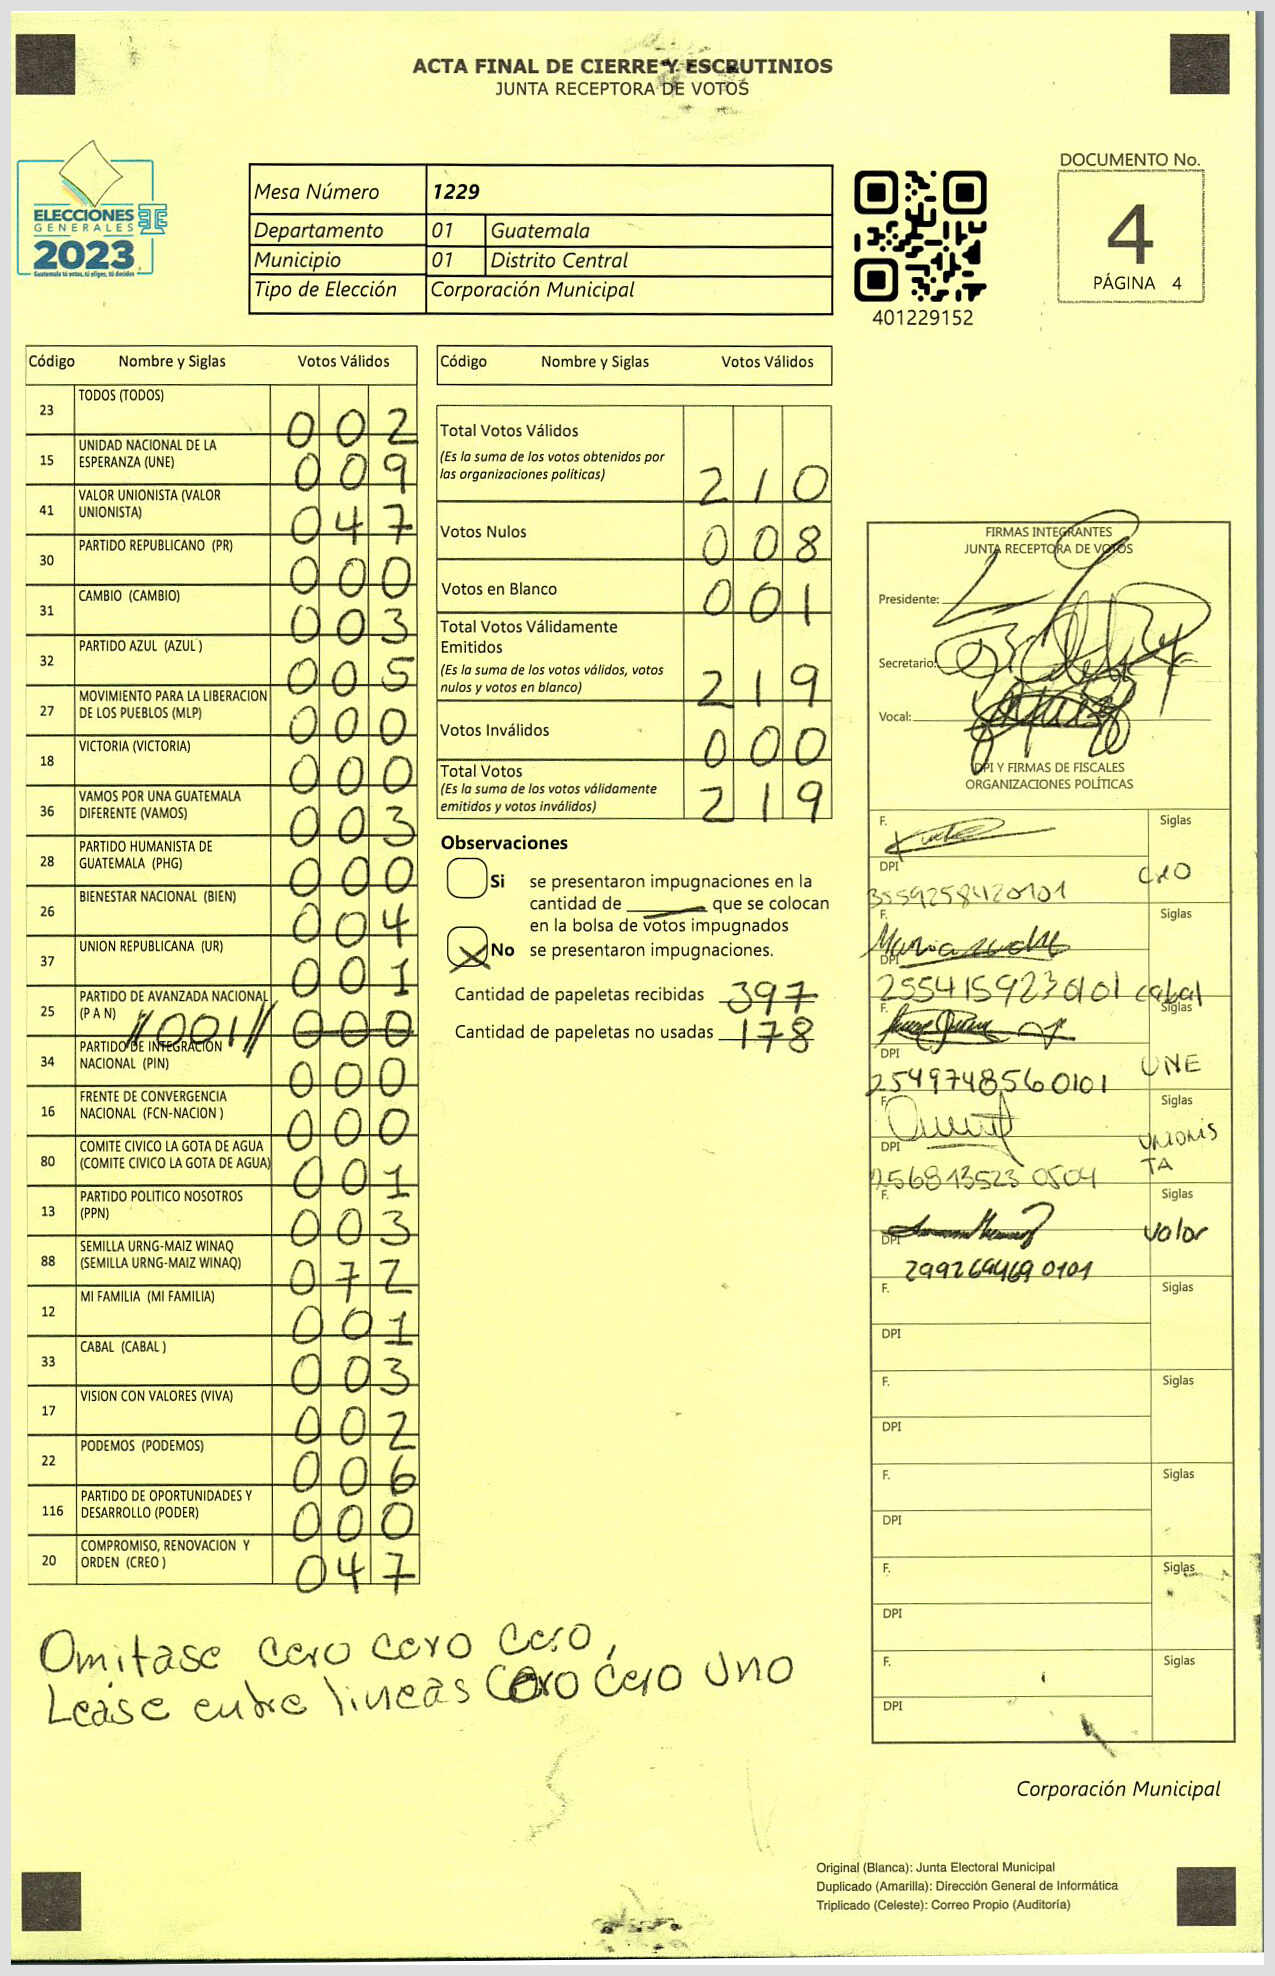 ACTA FINAL DE CIERRE Y ESCRUTINIOS
JUNTA RECEPTORA DE VOTOS
ELECCIONES
GENERALES
2023
Guatemala tú votas, tú eliges, tú decides
Mesa Número 1229
Departamento 01 Guatemala
Municipio 01 Distrito Central
Tipo de Elección Corporación Municipal
401229152
DOCUMENTO No.
4
PÁGINA 4
Código Nombre y Siglas Votos Válidos
23 TODOS (TODOS) 002
15 UNIDAD NACIONAL DE LA
ESPERANZA (UNE) 009
41 VALOR UNIONISTA (VALOR
UNIONISTA) 047
30 PARTIDO REPUBLICANO (PR) 000
31 CAMBIO (CAMBIO) 003
32 PARTIDO AZUL (AZUL ) 005
27 MOVIMIENTO PARA LA LIBERACION
DE LOS PUEBLOS (MLP) 000
18 VICTORIA (VICTORIA) 000
36 VAMOS POR UNA GUATEMALA
DIFERENTE (VAMOS) 003
28 PARTIDO HUMANISTA DE
GUATEMALA (PHG) 000
26 BIENESTAR NACIONAL (BIEN) 004
37 UNION REPUBLICANA (UR) 001
25 PARTIDO DE AVANZADA NACIONAL
(P A N) //001// 000
34 PARTIDO DE INTEGRACION
NACIONAL (PIN) 000
16 FRENTE DE CONVERGENCIA
NACIONAL (FCN-NACION ) 000
80 COMITE CIVICO LA GOTA DE AGUA
(COMITE CIVICO LA GOTA DE AGUA) 001
13 PARTIDO POLITICO NOSOTROS
(PPN) 003
88 SEMILLA URNG-MAIZ WINAQ
(SEMILLA URNG-MAIZ WINAQ) 072
12 MI FAMILIA (MI FAMILIA) 001
33 CABAL (CABAL ) 003
17 VISION CON VALORES (VIVA) 002
22 PODEMOS (PODEMOS) 006
116 PARTIDO DE OPORTUNIDADES Y
DESARROLLO (PODER) 000
20 COMPROMISO, RENOVACION Y
ORDEN (CREO ) 047
Código Nombre y Siglas Votos Válidos
Total Votos Válidos
(Es la suma de los votos obtenidos por
las organizaciones políticas) 210
Votos Nulos 008
Votos en Blanco 001
Total Votos Válidamente
Emitidos
(Es la suma de los votos válidos, votos
nulos y votos en blanco) 219
Votos Inválidos 000
Total Votos
(Es la suma de los votos válidamente
emitidos y votos inválidos) 219
Observaciones
Si se presentaron impugnaciones en la
cantidad de que se colocan
en la bolsa de votos impugnados
No se presentaron impugnaciones.
Cantidad de papeletas recibidas 397
Cantidad de papeletas no usadas 178
FIRMAS INTEGRANTES
JUNTA RECEPTORA DE VOTOS
Presidente:
Secretario:
Vocal:
DPI Y FIRMAS DE FISCALES
ORGANIZACIONES POLÍTICAS
F. Siglas
DPI
3559258420101
F. Siglas
DPI
2554159230101 cabal
F. Siglas
DPI
2549748560101 UNE
F. Siglas
DPI UNIONIS
TA
2568135230504
F. Siglas
DPI Valor
2992694690101
F. Siglas
DPI
F. Siglas
DPI
F. Siglas
DPI
F. Siglas
DPI
F. Siglas
DPI
Omitase cero cero cero,
Lease entre lineas cero cero uno
Corporación Municipal
Original (Blanca): Junta Electoral Municipal
Duplicado (Amarilla): Dirección General de Informática
Triplicado (Celeste): Correo Propio (Auditoría)